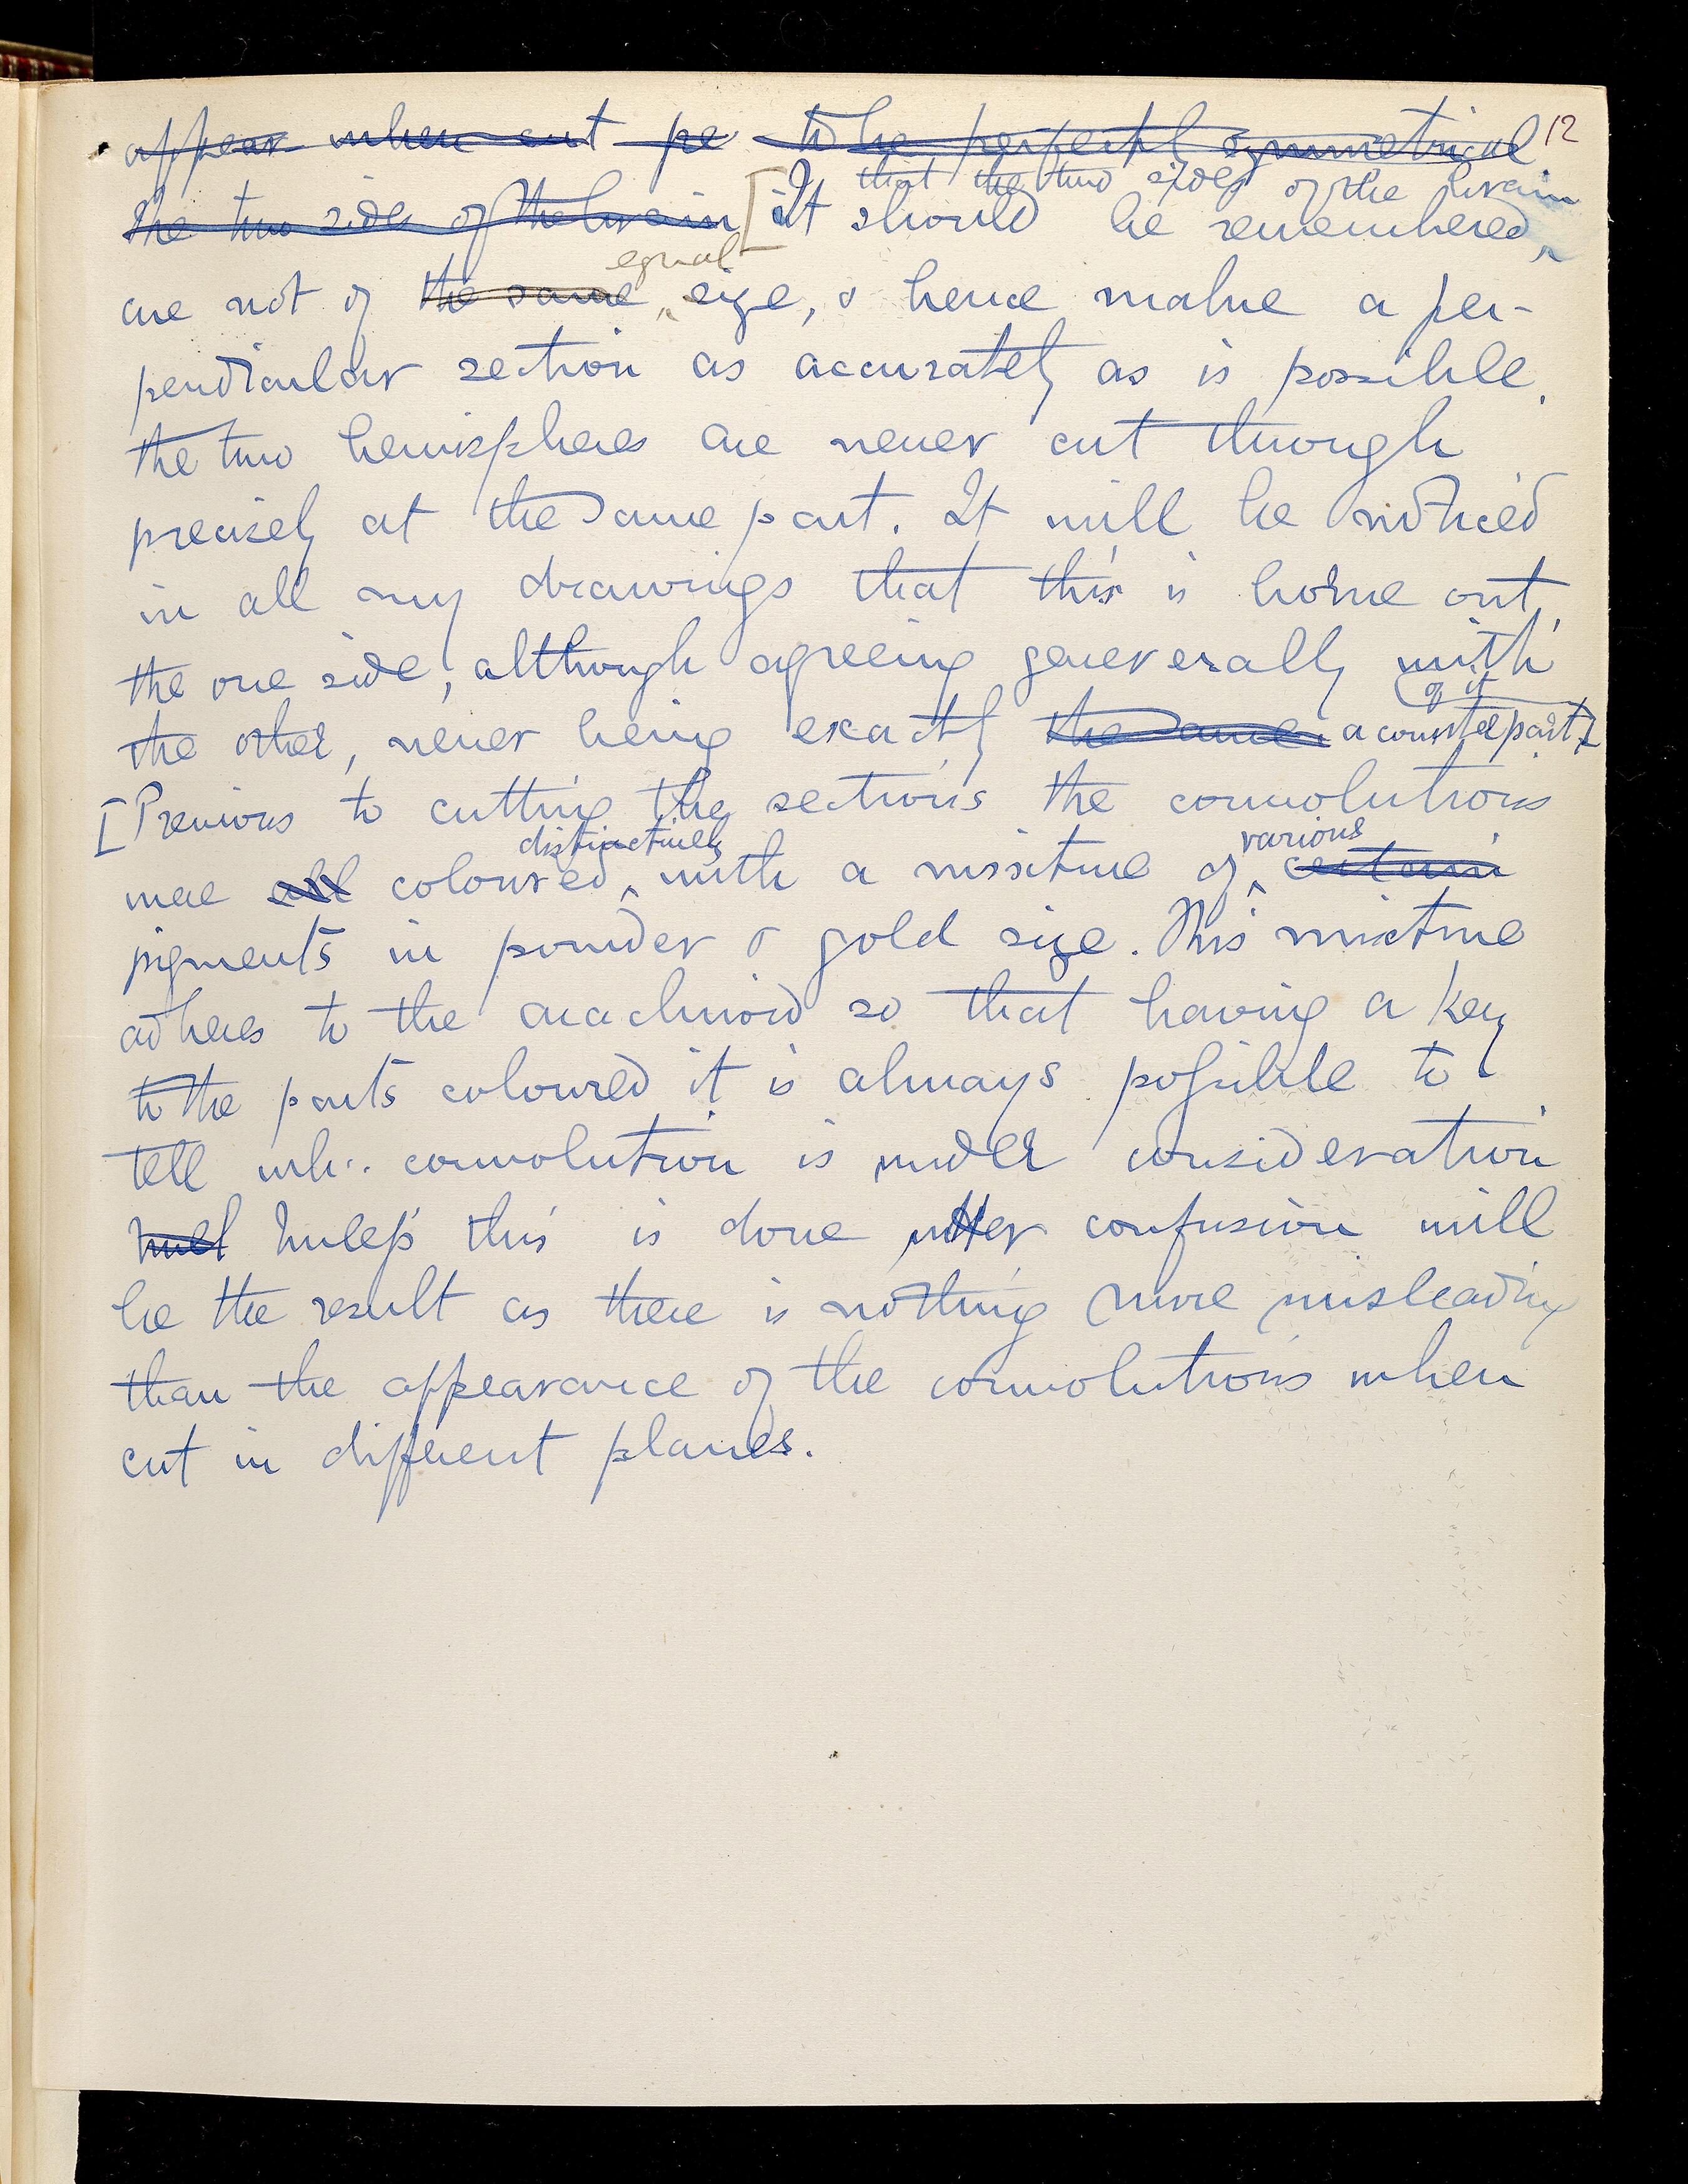 12
appear when cut pe to be perfectly symmetrical
that the two sides of the brain
the two sides of the brain [It should be remembered
equal
are not of the same size, & hence make a per-
pendicular section as accurately as is possible,
the two hemispheres are never cut through
precisely at the same part. It will be noticed
in all my drawings that this is borne out,
the one side, although agreeing generally with
of it
the other, never being exactly the same a counterpart]
[Previous to cutting the sections the convolutions
distinctively various
were all coloured, with a mixture of certain
pigments in powder & gold size. This mixture
adheres to the arachnoid so that having a key
to the parts coloured it is always possible to
tell wh. convolution is under consideration
Unless this is done utter confusion will
be the result as there is nothing more misleading
than the appearance of the convolutions when
cut in different planes.